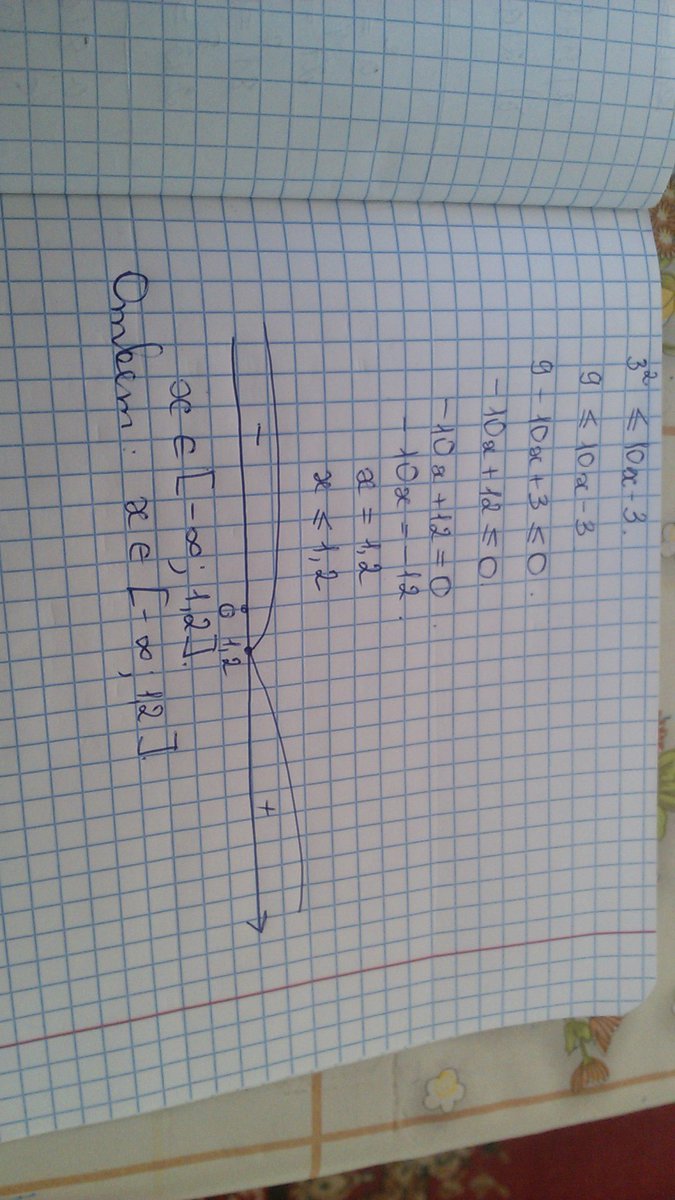 3² ≤ 10x - 3.
9 ≤ 10x - 3
9 - 10x + 3 ≤ 0.
-10x + 12 ≤ 0.
-10x + 12 = 0.
-10x = -12.
x = 1,2
x ≤ 1,2
- +
0 1,2
x ∈ [-∞; 1,2].
Ответ: x ∈ [-∞; 1,2].